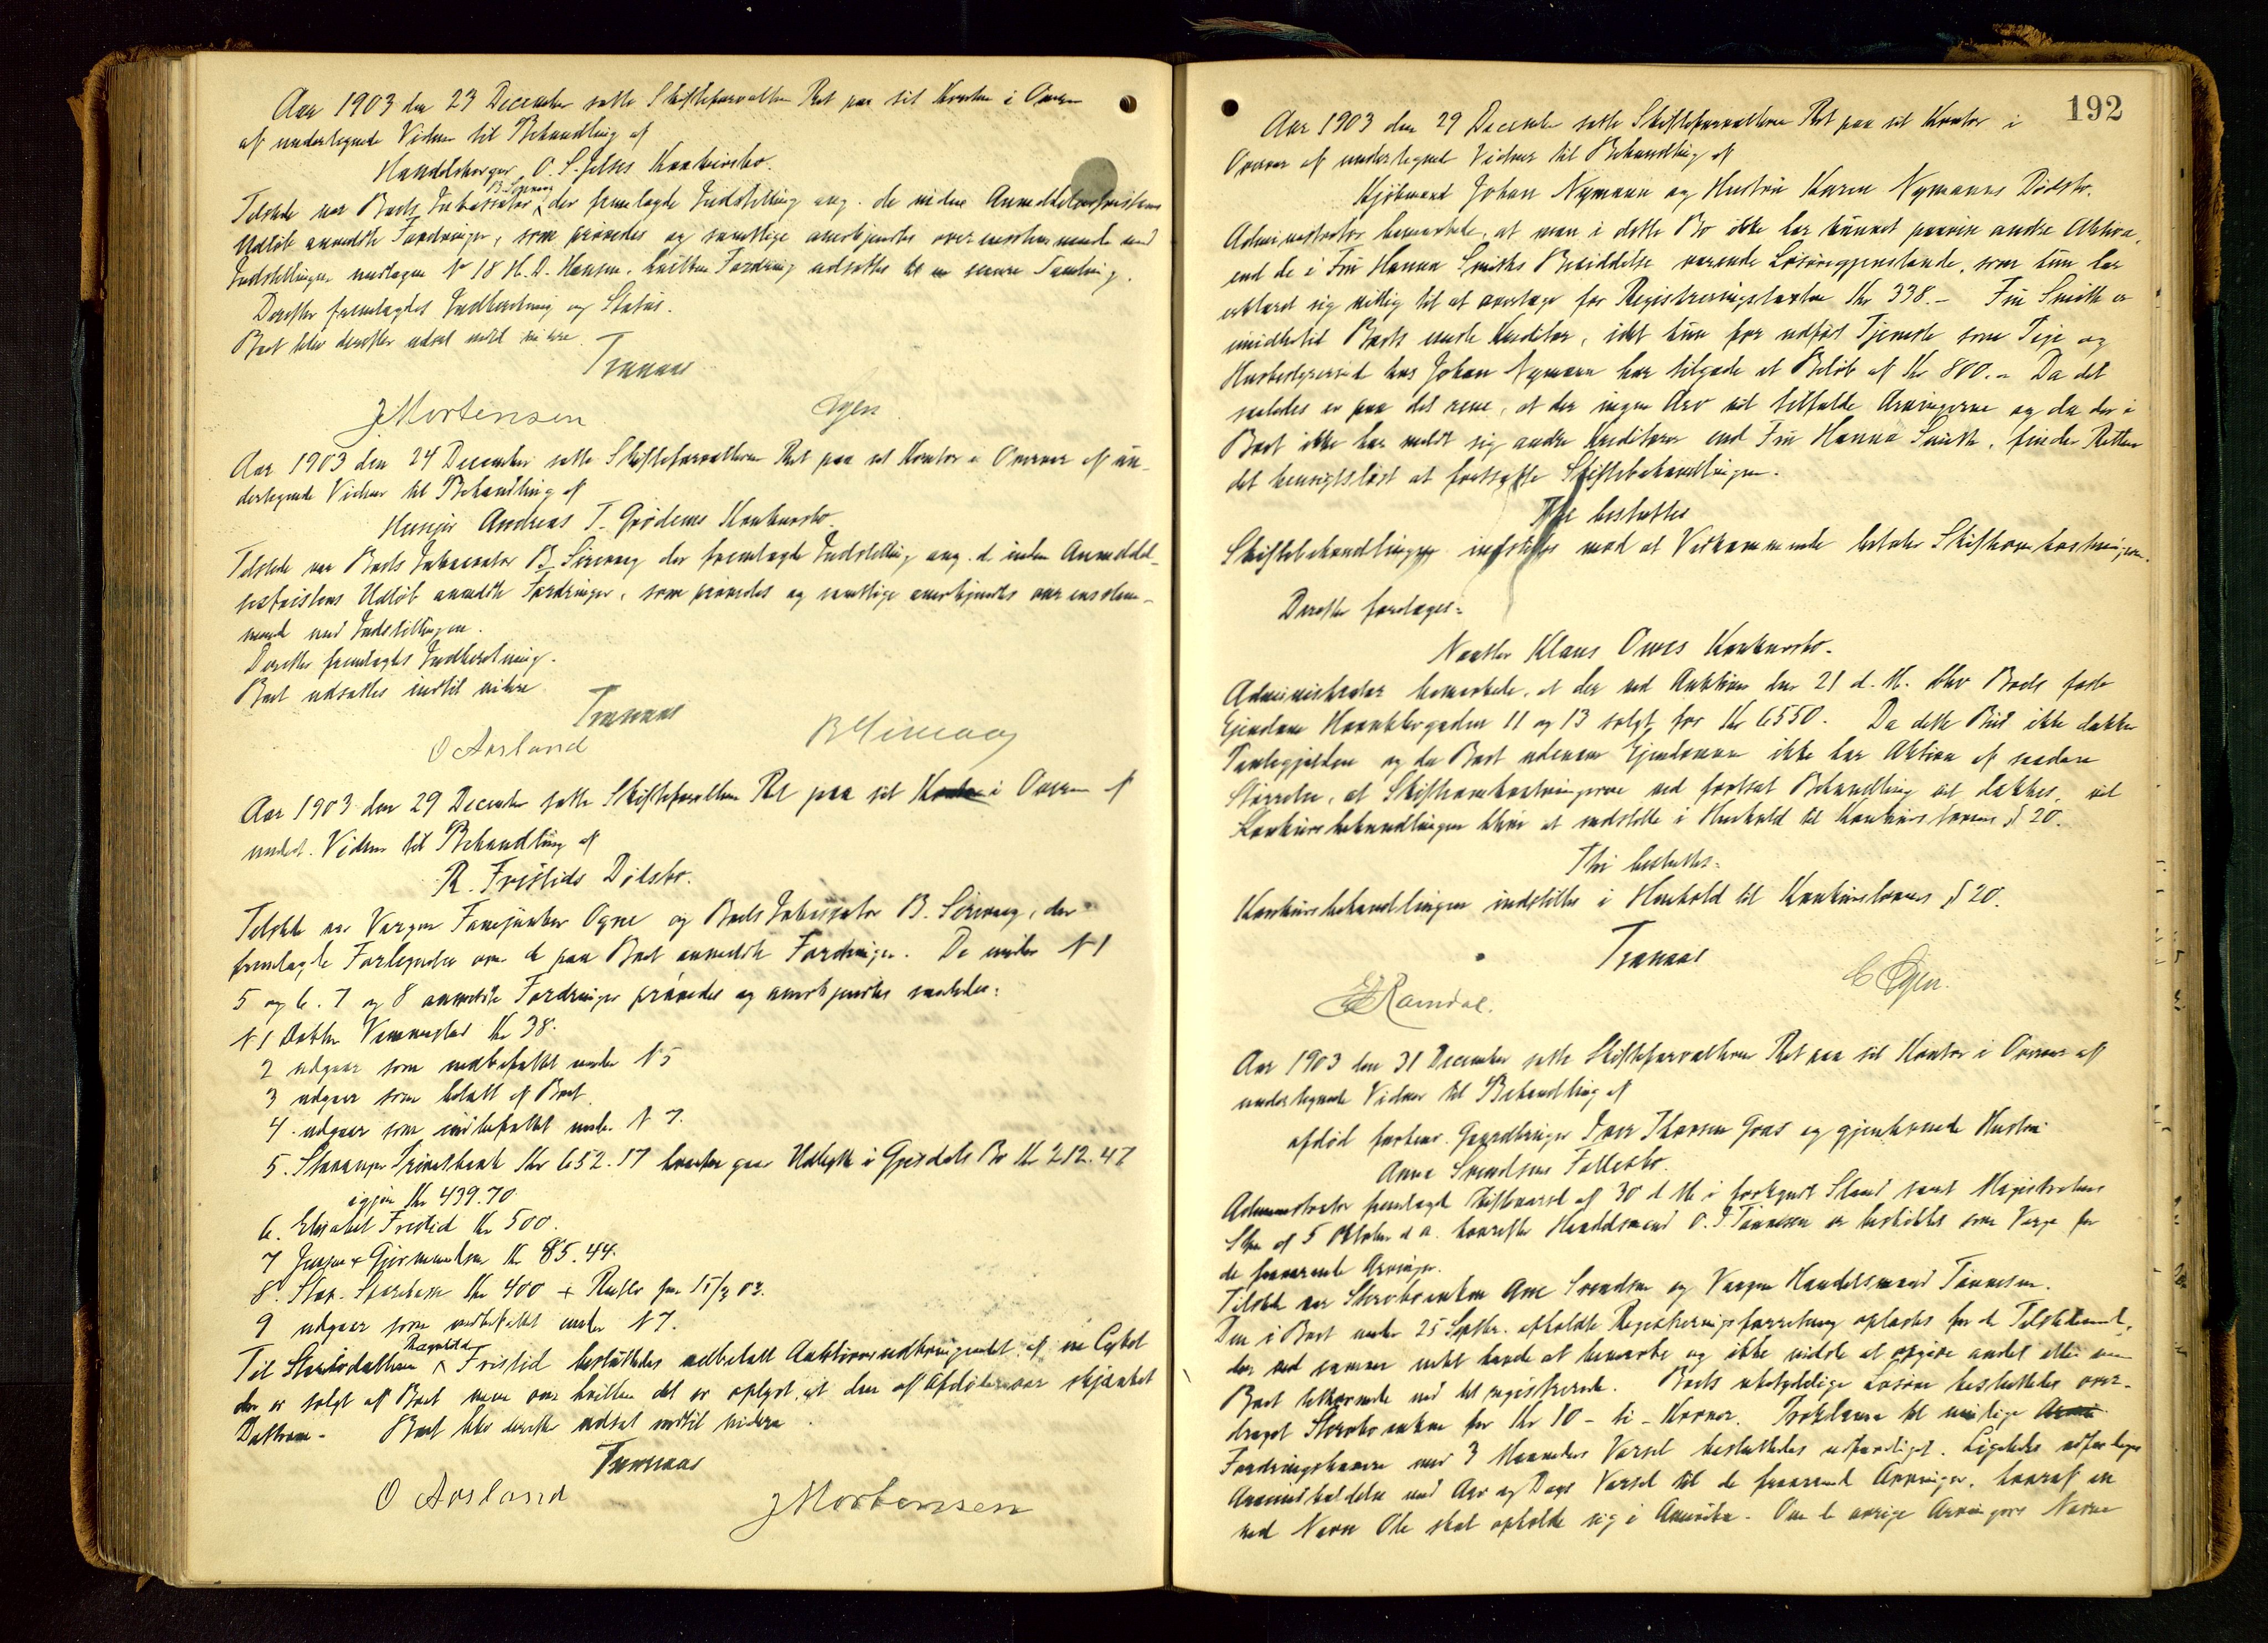 Aar 1903 den 23 December satte Skifteforvalteren Ret paa sit Kontor i Overvær
af undertegnede Vidner til Behandling af
Handelsborger O. S. Jelses Konkursbo.
Tilstede var Boets Inkassator B. Sirevaag der fremlagde Indstilling ang. de inden Anmeldelsesfristens
Udløb anmeldte Fordringer, som prøvedes og samtlige anerkjendtes overensstemmende med
Indstillingen undtagen No 18 H. D. Hansen, hvilken Fordring udsattes til en senere Samling.
Derefter fremlagdes Indberetning og Status.
Boet blev derefter udsat indtil videre.
Tranaas
J Mortensen Egen
Aar 1903 den 24 December satte Skifteforvalteren Ret paa sit Kontor i Overvær af un-
dertegnede Vidner til Behandling af
Andreas T. Grødems Konkursbo.
Tilstede var Boets Inkassator B. Sirevaag der fremlagde Indstilling ang. d. inden Anmeldel-
sesfristens Udløb anmeldte Fordringer, som prøvedes og samtlige anerkjendtes overensstem-
mende med Indstillingen.
Derefter fremlagdes Indberetning.
Boet udsattes indtil videre
Tranaas
O Aarsland B Sirevaag
Aar 1903 den 29 December satte Skifteforvalteren Ret paa sit Kontor i Overvær af
undert. Vidner til Behandling af
R. Fristids Dødsbo.
Tilstede var Vergen Ogne og Boets Inkassator B. Sirevaag, der
fremlagde Fortegnelse over de paa Boet anmeldte Fordringer. De under No 1
5 og 6. 7 og 8 anmeldte Fordringer prøvedes og anerkjendtes saaledes:
No 1 Doktor Vennerstad Kr 38.
2 udgaar som indbefattet under No 5
3 udgaar som betalt af Boet.
4. udgaar som indbefattet under No 7.
5. Stavanger Privatbank Kr 652.17 hvorfra gaar Udlæg i Gjesdals Bo Kr 212.47
igjen Kr 439.70
6. Elisabet Fristid Kr 500.
7 Jensen & Gjermundsen Kr 85.44.
8. Stav. Sparekasse Kr 400 + Renter fra 15/3 03.
9 udgaar som indbefattet under No 7.
Til Stervbodatteren Ragnhild Fristid besluttedes udbetalt Auktionsudbringendet af en Cykel
der er solgt af Boet men om hvilken det er oplyst, at den af Afdøde var skjænket
Datteren. Boet blev derefter udsat indtil videre.
Tranaas
O Aarsland J Mortensen
192
Aar 1903 den 29 December satte Skifteforvalteren Ret paa sit Kontor i
Overvær af undertegnede Vidner til Behandling af
Kjøbmand Johan Nymann og Hustru Karen Nymanns Dødsbo.
Administrator bemærkede, at man i dette Bo ikke har kunnet paavise andre Aktiva,
end de i Frk Hanna Smiths Besiddelse værende Løsøregjenstande, som hun har
erklæret sig villig til at overtage for Registreringstaxten Kr 338.- Frk Smith er
imidlertid Boets eneste Kreditor, idet hun for udført Tjeneste som Pige og
Husbestyrerinde hos Johan Nymann har tilgode et Beløb af Kr 800.- Da det
saaledes er paa det rene, at der ingen Arv vil tilfalde Arvingerne og da der i
Boet ikke har meldt sig andre Kreditorer end Frk Hanna Smith, finder Retten
det hensigtsløst at fortsætte Skiftebehandlingen.
Thi besluttes
Skiftebehandlingen indstilles mod at Vedkommende betaler Skifteomkostningerne.
Derefter foretages:
Klaus Owes Konkursbo.
Administrator bemærkede, at der ved Auktion den 21 d. M. blev Boets faste
Eiendom Haukeligaden 11 og 13 solgt for Kr 6550. Da dette Bud ikke dækker
Pantegjælden og da Boet udenom Eiendommen ikke har Aktiva af saadan
Størrelse, at Skifteomkostningerne ved fortsat Behandling vil dækkes, vil
Konkursbehandlingen blive at indstille i Henhold til Konkurslovens § 20.
Thi besluttes:
Konkursbehandlingen indstilles i Henhold til Konkurslovens § 20.
Tranaas
Ramdal. C Egen.
Aar 1903 den 31 December satte Skifteforvalteren Ret paa sit Kontor i Overvær af
undertegnede Vidner til Behandling af
afdød forhenv. Gaardbruger Iver Thorsen Goas og gjenlevende Hustru
Anna Svendsens Fællesbo.
Administrator fremlagde Skiftevarsel af 30 d M i forkyndt Stand samt Magistratens
Skr. af 5 Oktober d. a. hvorefter Handelsmand O. J. Tønnesen er beskikket som Verge for
de fraværende Arvinger.
Tilstede var Stervboenken Ane Svendsen og Vergen Handelsmand Tønnesen.
Den i Boet under 25 Septbr. afholdte Registreringsforretning oplæstes for de Tilstedeværende,
der ved samme intet havde at bemærke og ikke vidste at opgive andet eller mere
Boet tilhørende end det registrerede. Boets ubetydelige Løsøre besluttedes over-
draget Stervboenken for Kr 10 - ti - Kroner. Proklama til mulige
Fordringshavere med 3 Maaneders Varsel besluttedes udfærdiget. Ligeledes udfærdiges
Arveindkaldelse med Aar og Dags Varsel til de fraværende Arvinger, hvoraf en
ved Navn Ole skal opholde sig i Amerika. Om de øvrige Arvingers Navne